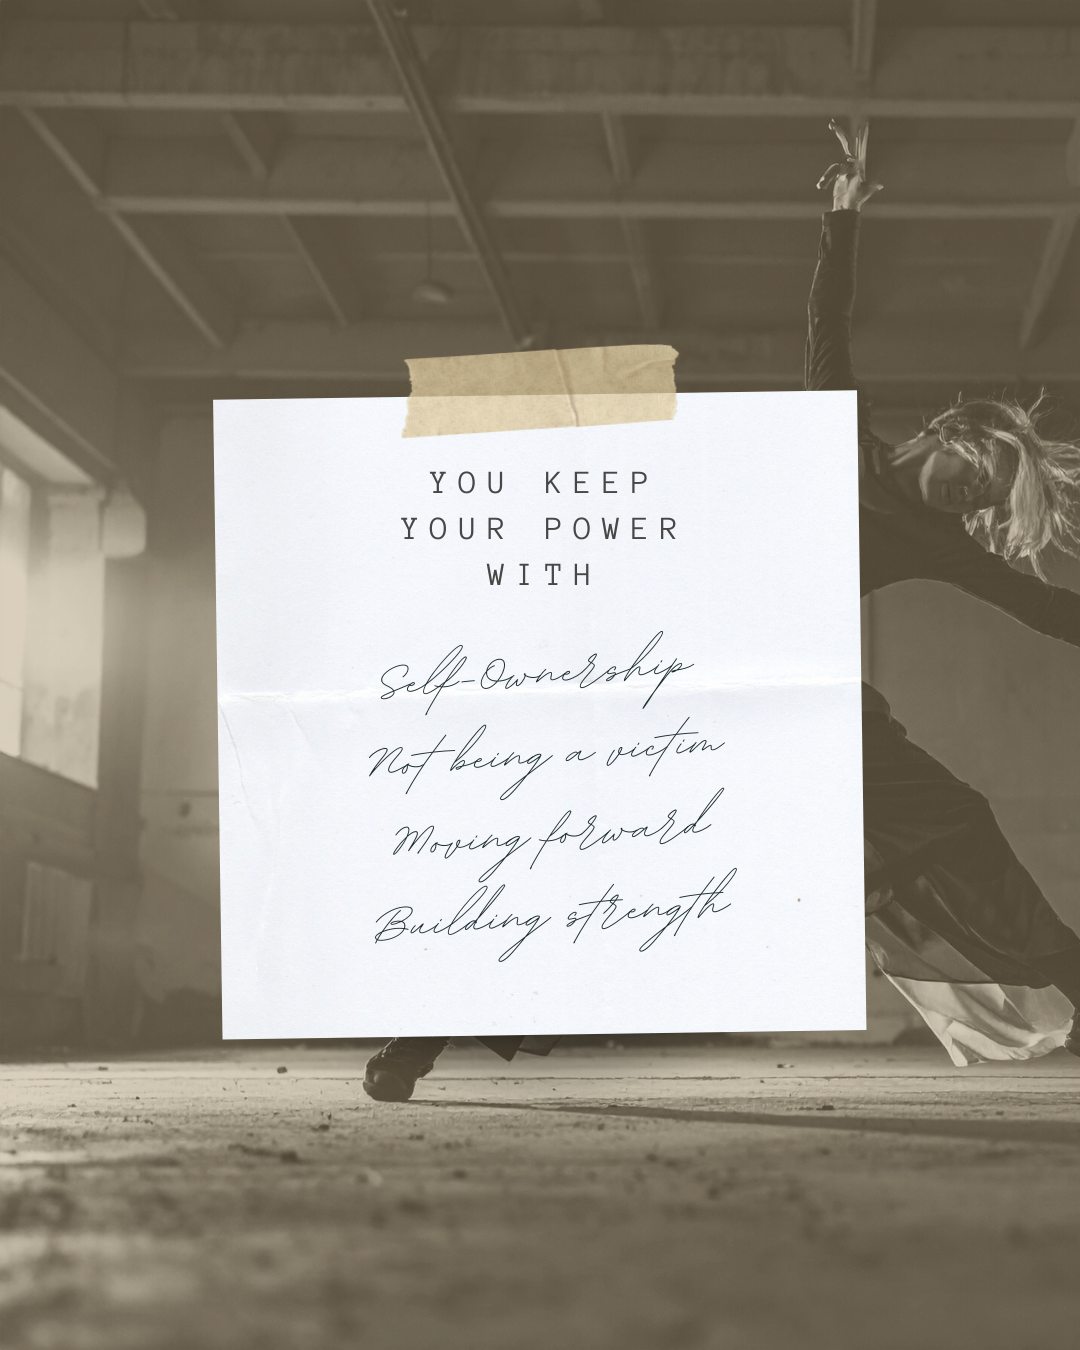 YOU KEEP
YOUR POWER
WITH
Self-Ownership
Not being a victim
Moving forward
Building strength